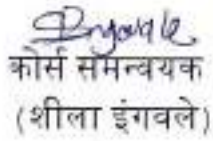 कोर्स समन्वयक
(शीला इंगवले)